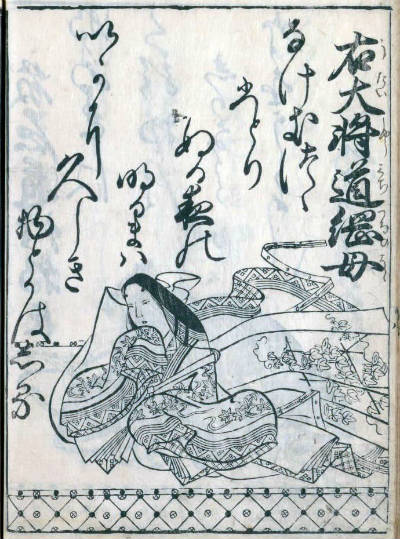 右大将道綱母
なけきつゝ
ひとり
ぬる夜の
明るまハ
いかに
久しき
物とかは志る